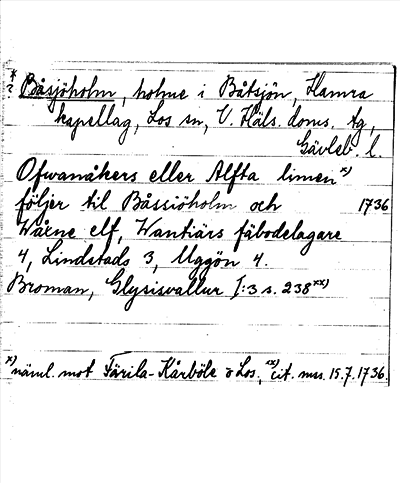 *? Båsjöholm, holme i Båtsjön, Hamra
kapellag, Los sn, V. Häls. doms. tg,
Gävleb. l.
Ofwanåkers eller Alfta limen x)
följer til Båssiöholm och 1736
Wåxne elf, Wantiärs fäbodelagare
4, Lindstads 3, Uggön 4.
Broman, Glysisvallur I:3 s. 238 xx)
x) näml. mot Färila-Kårböle o Los, xx) cit. mss. 15.7.1736.